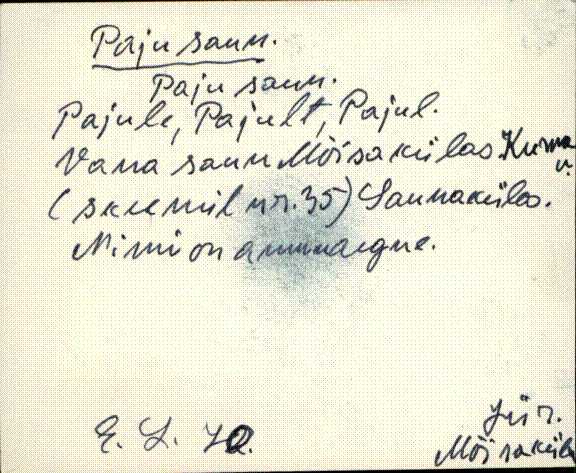 Paju saun.
Paju saun.
Pajule, Pajult, Pajul.
Vana saun Mõisakülas Kurna v.
(skeemil nr. 35) Saunakülas.
Nimi on ammuaegne.
E. S. 70.
Jür.
Mõisaküla